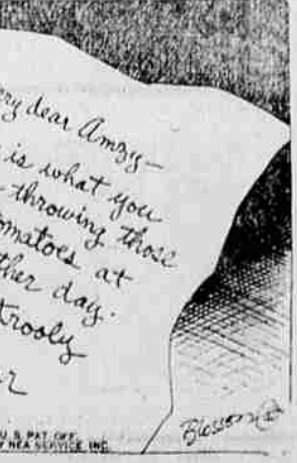 my dear Amzy—
is what you
throwing those
omatoes at
ther day.
trooly
Blossom
U. S. PAT. OFF.
Y NEA SERVICE, INC.